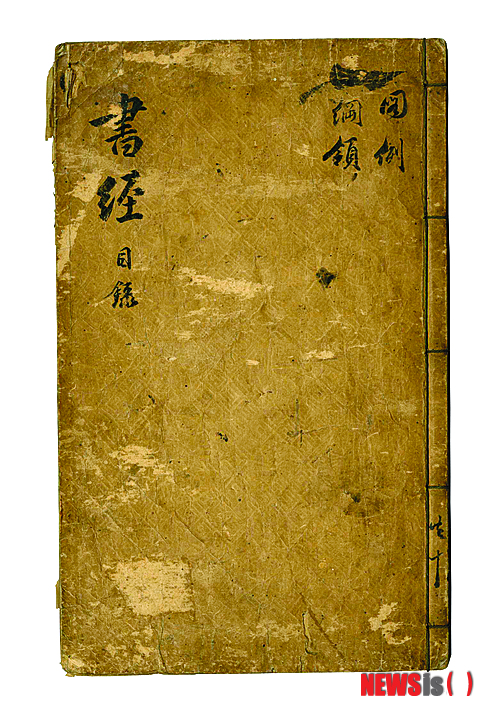 圖例
綱領
書經目錄
共十
NEWSis( )